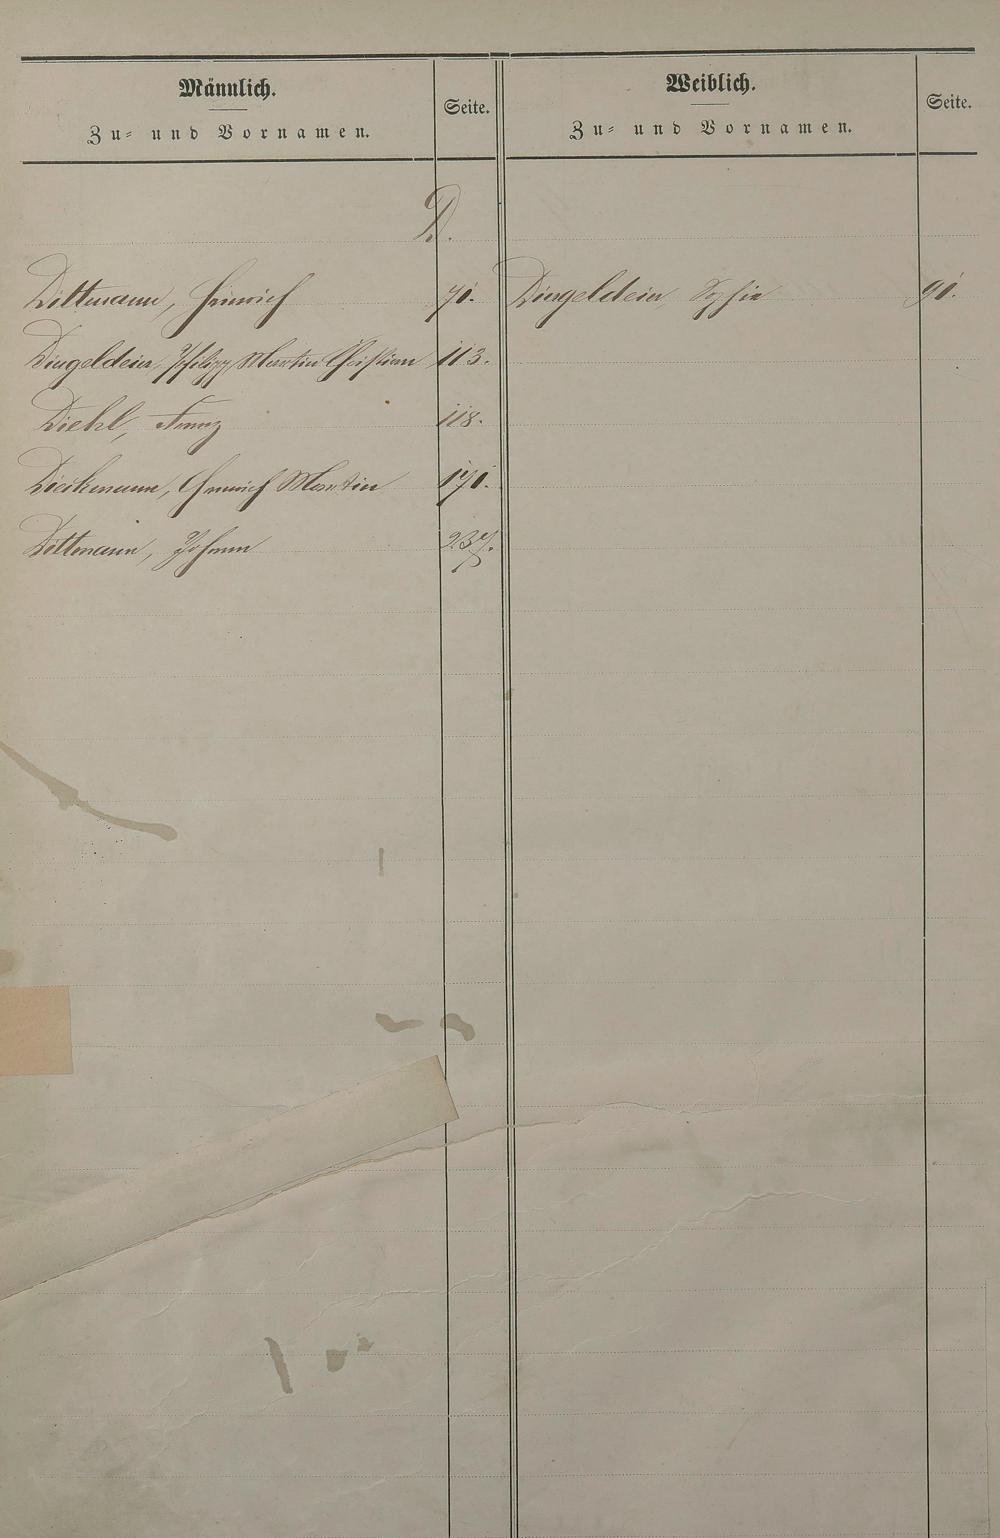 Männlich.
Zu= und Vornamen.
Seite.
Weiblich.
Zu= und Vornamen.
Seite.
D.
Dittmann, Heinrich 71.
Dingeldein, Philipp Martin Christian 113.
Diehl, Franz 118.
Dieckmann, Heinrich Martin 171.
Dittmann, Johann 237.
Dingeldein, Sophie 91.